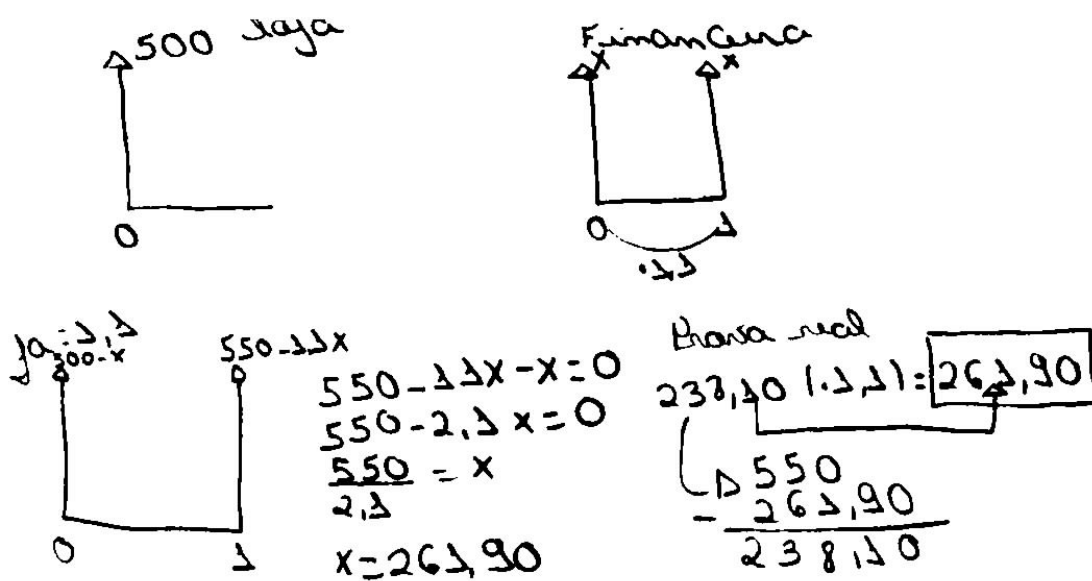 500 Loja
0
Financeira
x x
0 1
.1,1
fa = 1,1
500-x 550-1,1x
0 1
550-1,1x-x=0
550-2,1x=0
550 = x
2,1
x=261,90
Prova real
238,10 (.1,1) = 261,90
550
- 261,90
238,10